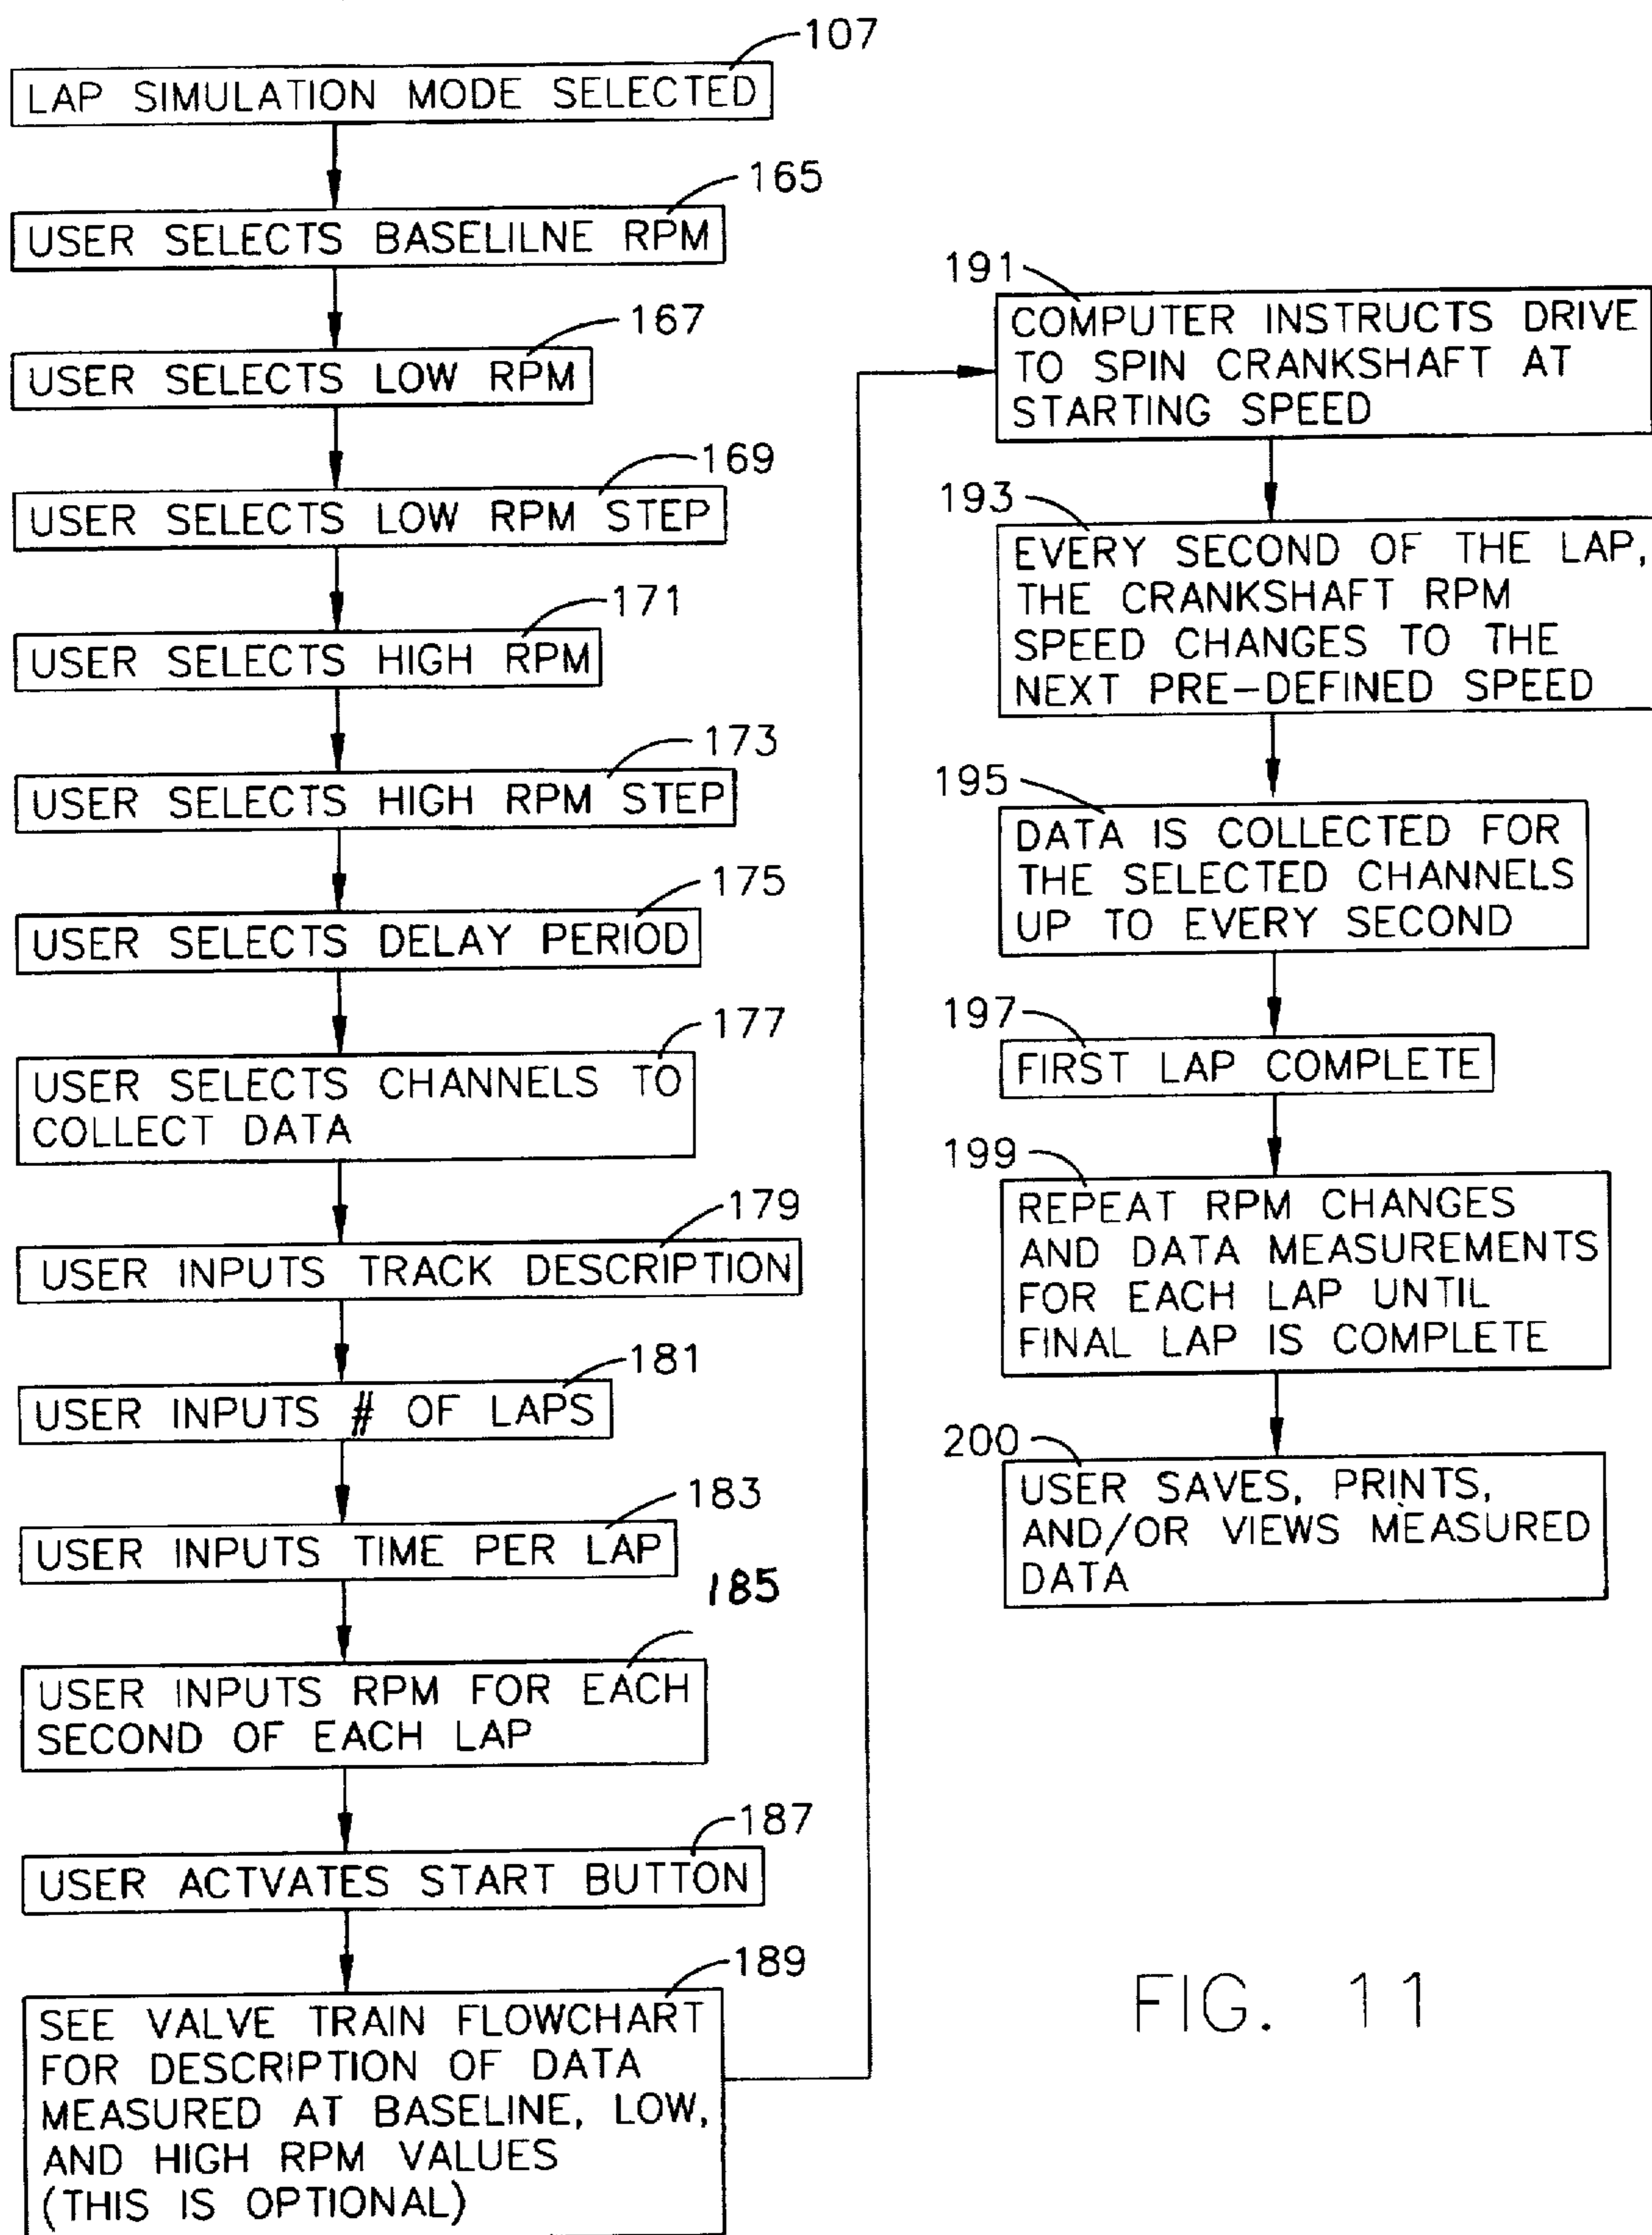 107
LAP SIMULATION MODE SELECTED
165
USER SELECTS BASELILNE RPM
167
USER SELECTS LOW RPM
169
USER SELECTS LOW RPM STEP
171
USER SELECTS HIGH RPM
173
USER SELECTS HIGH RPM STEP
175
USER SELECTS DELAY PERIOD
177
USER SELECTS CHANNELS TO
COLLECT DATA
179
USER INPUTS TRACK DESCRIPTION
181
USER INPUTS # OF LAPS
183
USER INPUTS TIME PER LAP
185
USER INPUTS RPM FOR EACH
SECOND OF EACH LAP
187
USER ACTVATES START BUTTON
189
SEE VALVE TRAIN FLOWCHART
FOR DESCRIPTION OF DATA
MEASURED AT BASELINE, LOW,
AND HIGH RPM VALUES
(THIS IS OPTIONAL)
191
COMPUTER INSTRUCTS DRIVE
TO SPIN CRANKSHAFT AT
STARTING SPEED
193
EVERY SECOND OF THE LAP,
THE CRANKSHAFT RPM
SPEED CHANGES TO THE
NEXT PRE-DEFINED SPEED
195
DATA IS COLLECTED FOR
THE SELECTED CHANNELS
UP TO EVERY SECOND
197
FIRST LAP COMPLETE
199
REPEAT RPM CHANGES
AND DATA MEASUREMENTS
FOR EACH LAP UNTIL
FINAL LAP IS COMPLETE
200
USER SAVES, PRINTS,
AND/OR VIEWS MEASURED
DATA
FIG. 11